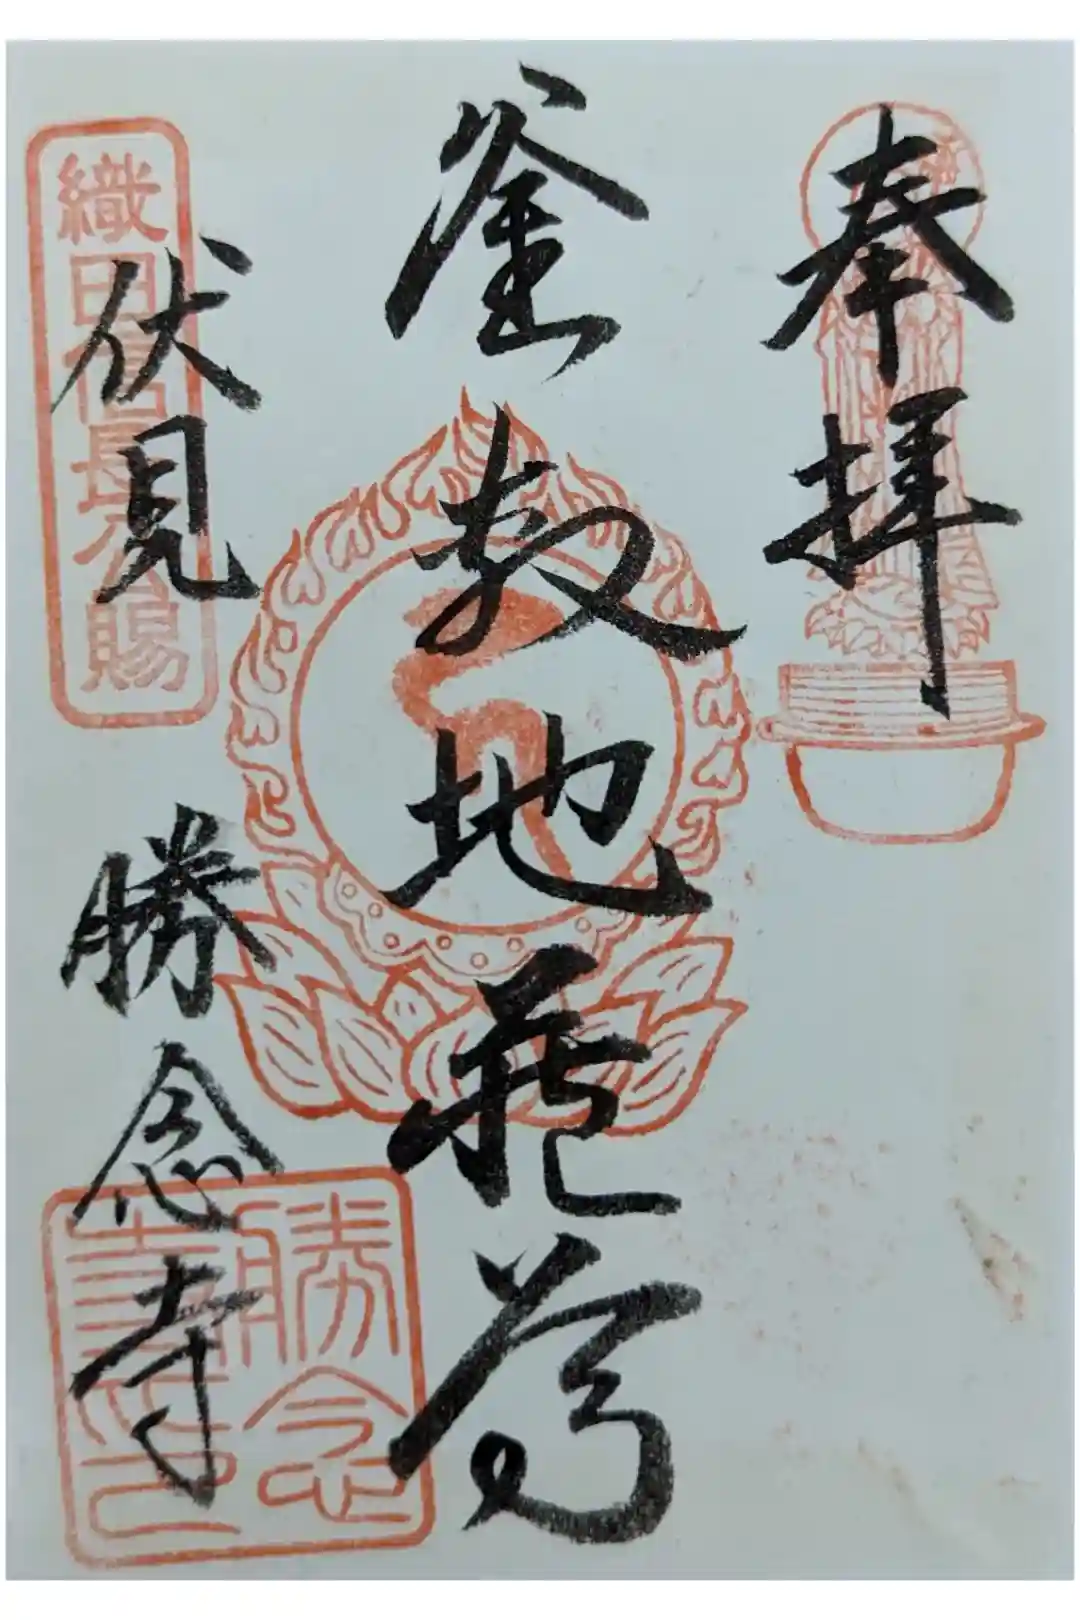 奉拝
釜敷地蔵尊
伏見
勝念寺
織田信長公賜
勝念
寺印